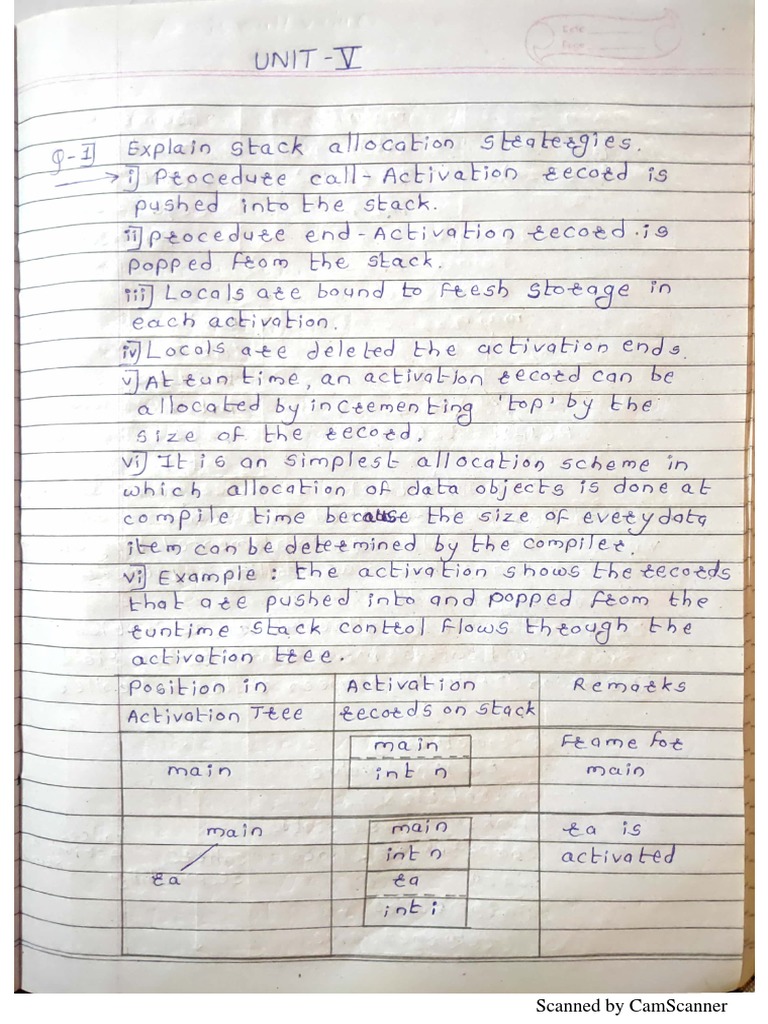 UNIT-V
Q-1] Explain stack allocation stratergies.
→ i] Procedure call-Activation record is
pushed into the stack.
ii] procedure end-Activation record is
popped from the stack.
iii] Locals are bound to fresh storage in
each activation.
iv] Locals are deleted the activation ends.
v] At run time, an activation record can be
allocated by incrementing 'top' by the
size of the record.
vi] It is an simplest allocation scheme in
which allocation of data objects is done at
compile time because the size of every data
item can be determined by the compiler.
vi] Example : the activation shows the records
that are pushed into and popped from the
runtime stack control flows through the
activation tree.
Position in Activation Remarks
Activation Tree records on stack
main Frame for
main int n main
main main ra is
int n activated
ra ra
int i
Scanned by CamScanner